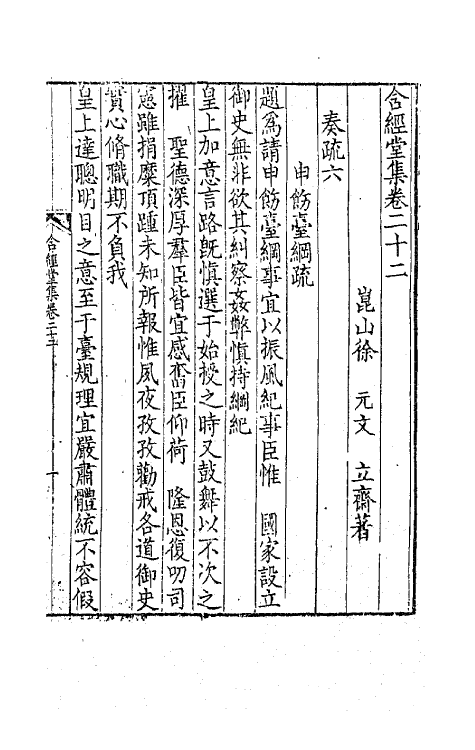 含經堂集卷二十二
崑山徐 元文 立齋著
奏疏六
申飭臺綱疏
題爲請申飭臺綱事宜以振風紀事臣惟 國家設立
御史無非欲其糾察姦弊慎持綱紀
皇上加意言路旣慎選于始授之時又鼓舞以不次之
擢 聖德深厚羣臣皆宜感奮臣仰荷 隆恩復叨司
憲雖捐糜頂踵未知所報惟夙夜孜孜勸戒各道御史
實心脩職期不負我
皇上達聰明目之意至于臺規理宜嚴肅體統不容假
含經堂集卷二十二 一